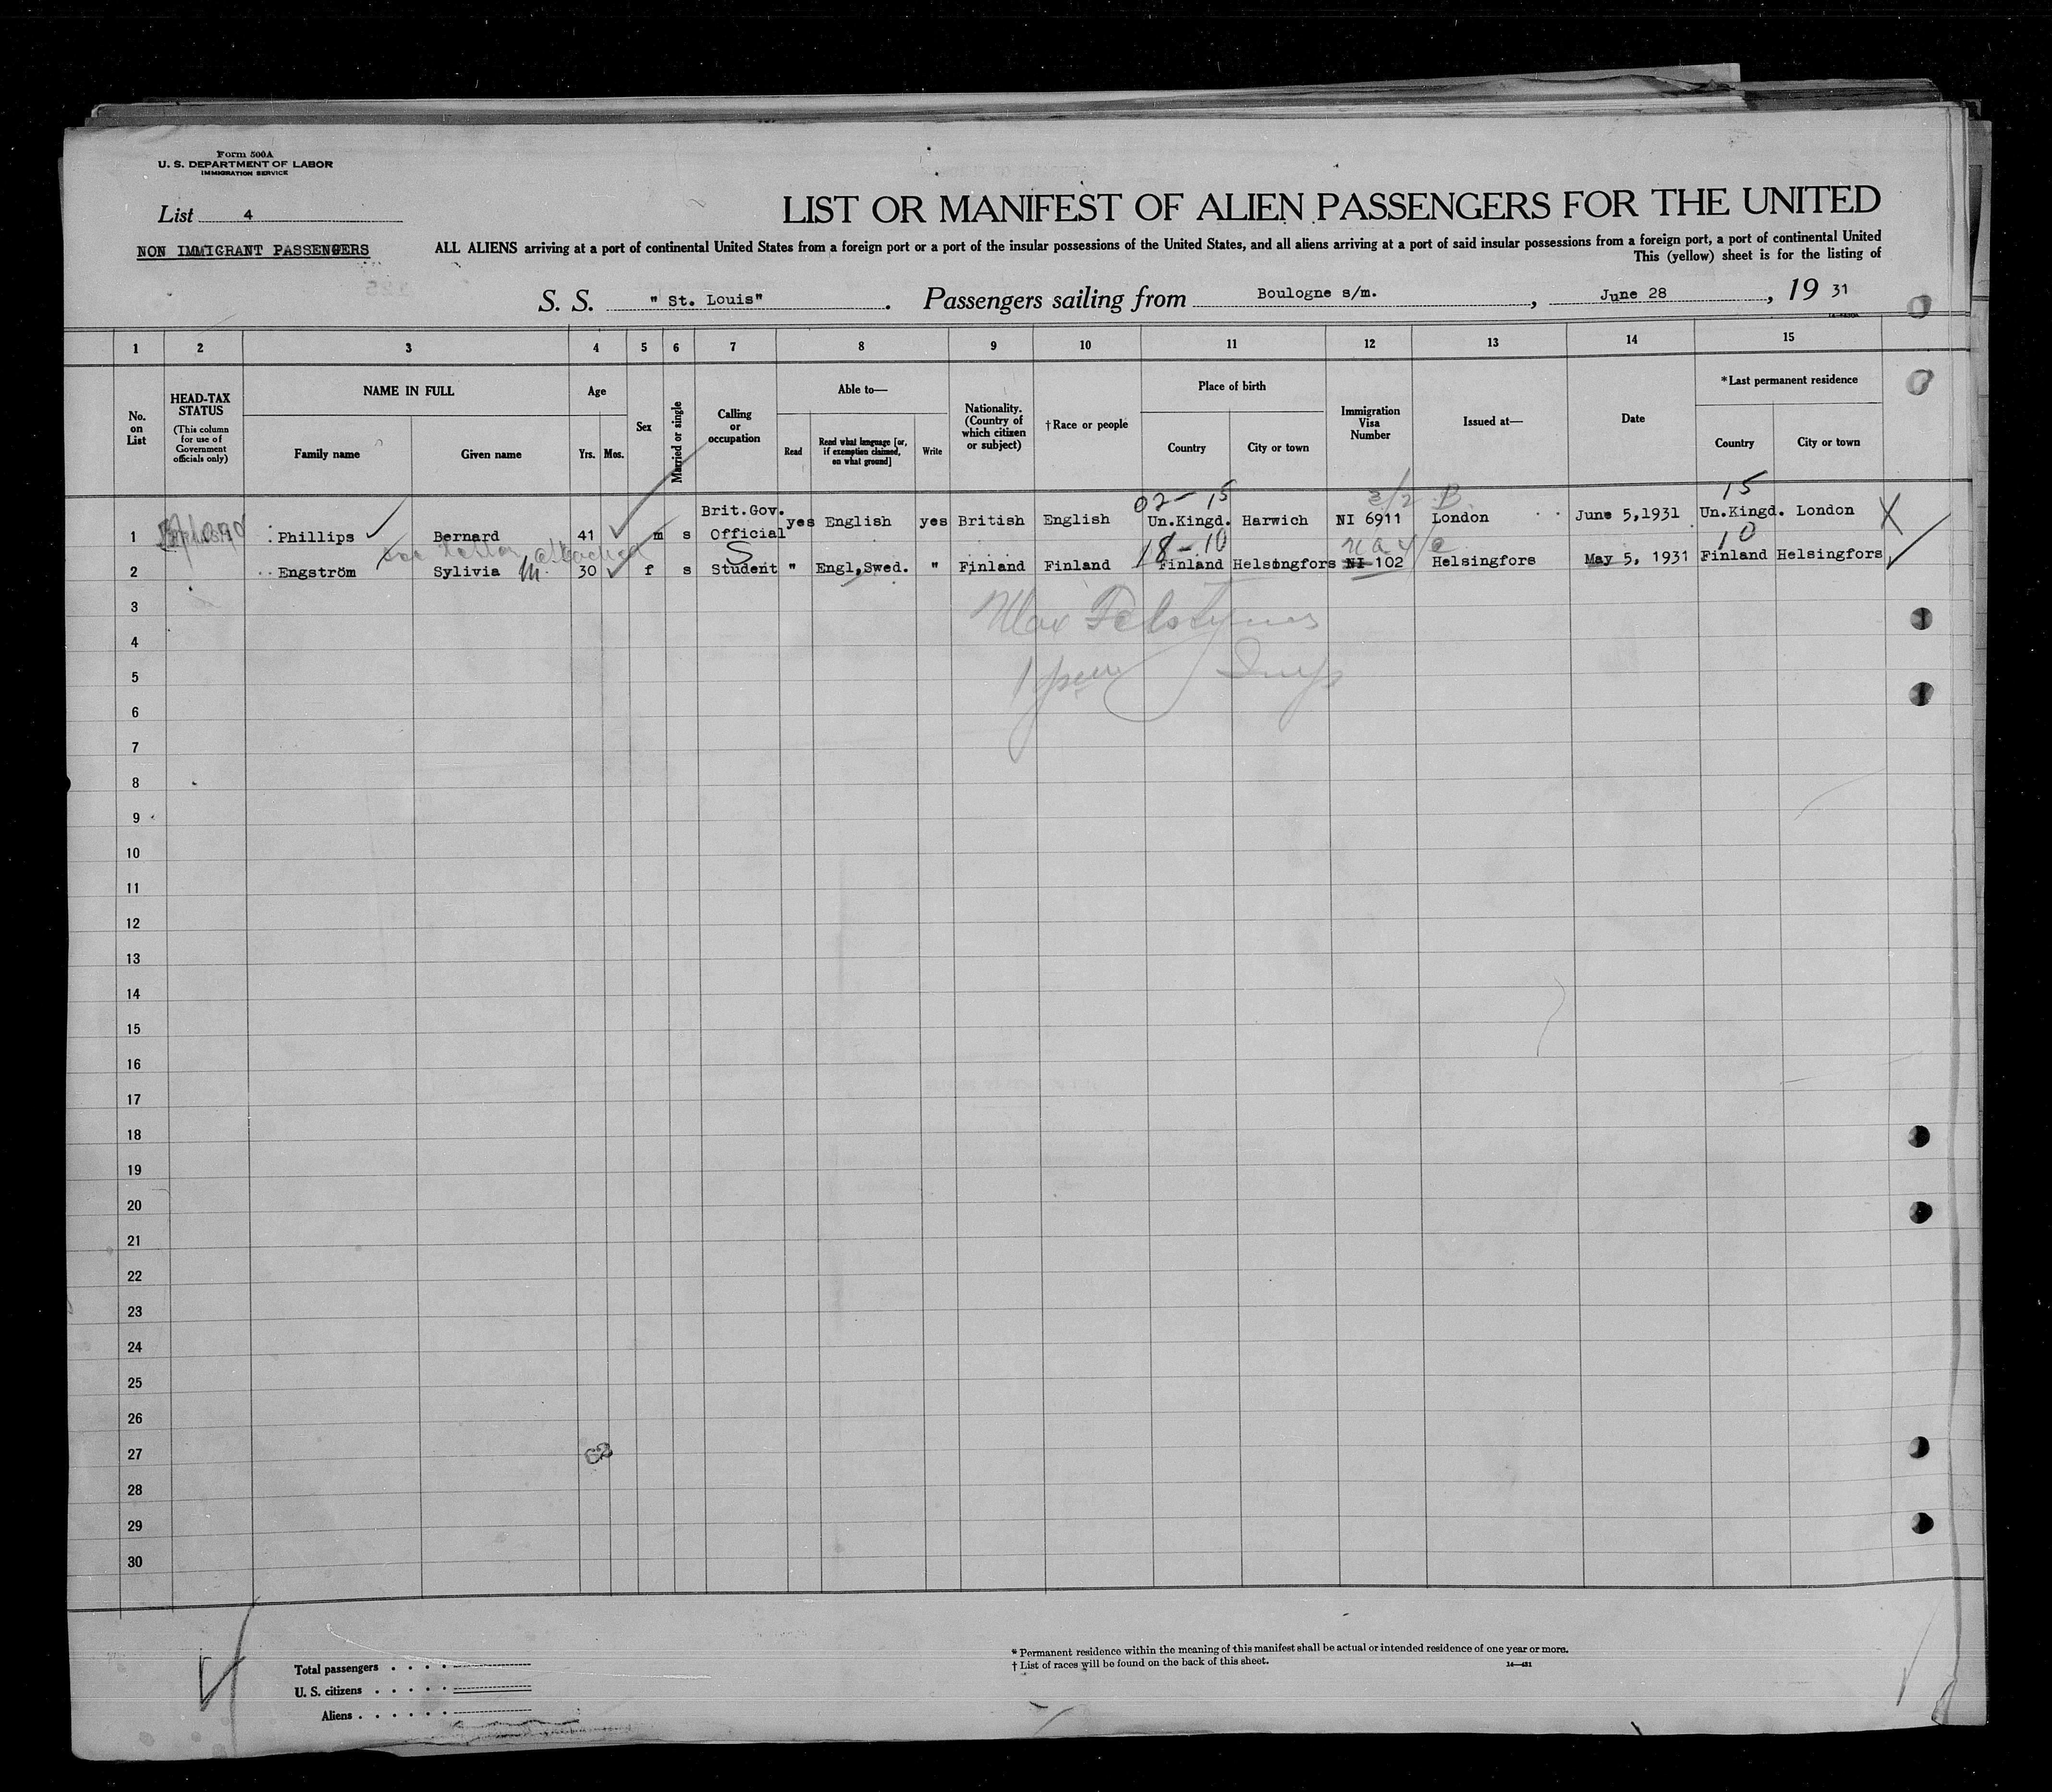 Form 500A
U. S. DEPARTMENT OF LABOR
IMMIGRATION SERVICE
List 4
NON IMMIGRANT PASSENGERS
LIST OR MANIFEST OF ALIEN PASSENGERS FOR THE UNITED
ALL ALIENS arriving at a port of continental United States from a foreign port or a port of the insular possessions of the United States, and all aliens arriving at a port of said insular possessions from a foreign port, a port of continental United
This (yellow) sheet is for the listing of
S. S. " St. Louis" . Passengers sailing from Boulogne s/m. , June 28 , 19 31
1 2 3 4 5 6 7 8 9 10 11 12 13 14 15
No. on List
HEAD-TAX STATUS
(This column for use of Government officials only)
NAME IN FULL
Family name Given name
Age
Yrs. Mos.
Sex
Married or single
Calling or occupation
Able to—
Read
Read what language [or, if exemption claimed, on what ground]
Write
Nationality. (Country of which citizen or subject)
†Race or people
Place of birth
Country City or town
Immigration Visa Number
Issued at—
Date
*Last permanent residence
Country City or town
02 - 15 3/2 B 15
1 Phillips Bernard 41 m s Brit.Gov. Official yes English yes British English Un.Kingd. Harwich NI 6911 London June 5,1931 Un.Kingd. London X
see letter attached
S 18 - 10 10
2 Engström Sylivia M. 30 f s Student " Engl,Swed. " Finland Finland Finland Helsingfors NI 102 Helsingfors May 5, 1931 Finland Helsingfors
3
4
5
6
7
8
9
10
11
12
13
14
15
16
17
18
19
20
21
22
23
24
25
26
27
28
29
30
62
Total passengers . . . .
U. S. citizens . . . . .
Aliens . . . . . .
* Permanent residence within the meaning of this manifest shall be actual or intended residence of one year or more.
† List of races will be found on the back of this sheet.
14—431